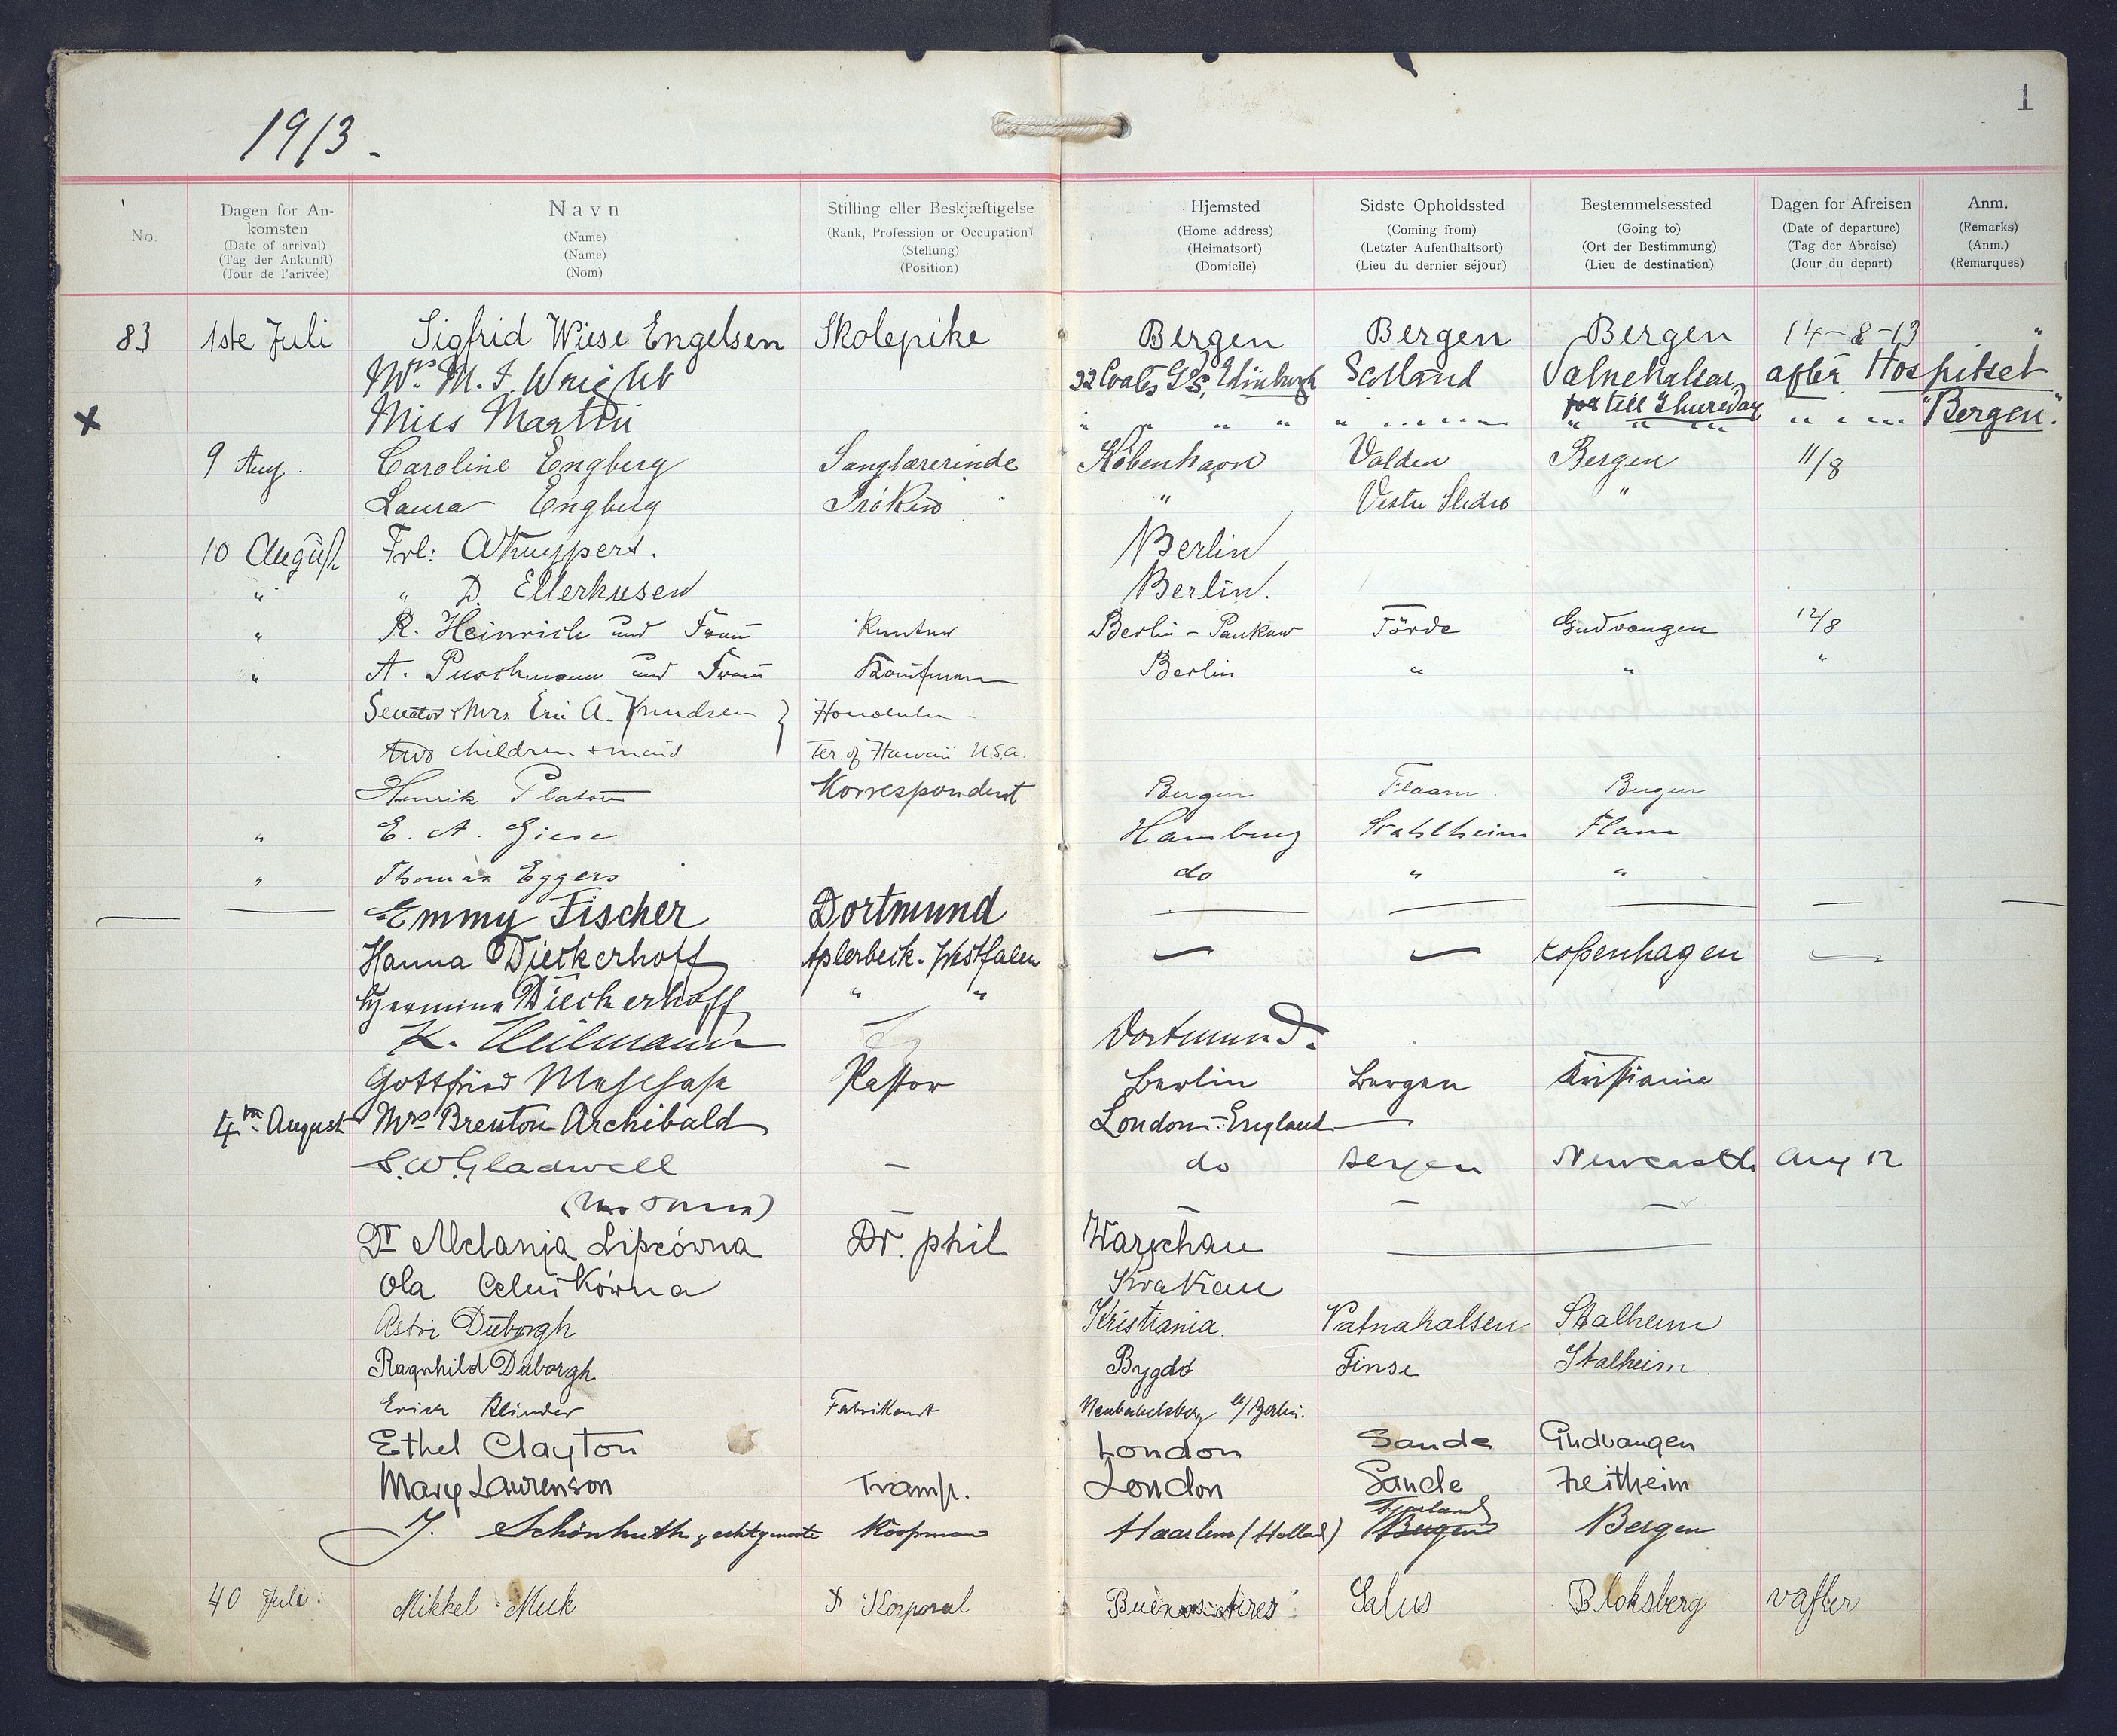 1913.
1
No.
Dagen for Ankomsten (Date of arrival) (Tag der Ankunft) (Jour de l'arivée)
Navn (Name) (Name) (Nom)
Stilling eller Beskjæftigelse (Rank, Profession or Occupation) (Stellung) (Position)
Hjemsted (Home address) (Heimatsort) (Domicile)
Sidste Opholdssted (Coming from) (Letzter Aufenthaltsort) (Lieu du dernier séjour)
Bestemmelsessted (Going to) (Ort der Bestimmung) (Lieu de destination)
Dagen for Afreisen (Date of departure) (Tag der Abreise) (Jour du depart)
Anm. (Remarks) (Anm.) (Remarques)
83 1ste Juli Sigfrid Wiese Engelsen Skolepike Bergen Bergen Bergen 14-8-13 "
Mrs. M. I. Wright 22 Coates Gds, Edinburgh Scotland after Hospitset
x Miss Martin " " " " " till Thursday " " "Bergen".
9 Aug. Caroline Engberg Sanglærerinde København Valden Bergen 11/8
Laura Engberg Frøken " Vestre Slidre "
10 August Frl: Berlin
" " D. Ellerhusen Berlin.
" R. Heinrich und Frau Berlin - Pankow Förde Gudvangen 12/8
" A. Puschmann und Frau Kaufmann Berlin " " "
Senator & Mrs Eric A. Knudsen } Honolulu
two children + maid Ter. of Hawaii U.S.A.
Henrik Platou Korrespondent Bergen Flaam Bergen
" E. A. Giese Hamburg Stahlheim Flam
" Thomas Eggers do " "
Emmy Fischer Dortmund
Hanna Dieckerhoff Aplerbeck - Westfalen Kopenhagen
Hermine Dieckerhoff " "
K. Heilmann Dortmund.
Gottfried Pastor Berlin Bergen Kristiania
4th August Mrs Brenton Archibald London - England
S. W. Gladwell - do Bergen Newcastle Aug 12
Dr Melanja Lipcówna Dr. phil Warschau
Ola Celnikówna Krakau
Astri Duborgh Kristiania. Vatnahalsen Stalheim
Ragnhild Duborgh Bygdø Finse Stalheim.
Erich Blinder Fabrikant Neubabelsberg b/Berlin.
Ethel Clayton London Sande Gudvangen
Mary Laurenson Tramp. London Sande Freitheim
J. Schönhuth & echtgenoote Koopman Haarlem (Holland) Fjærland Bergen Bergen
40 Juli. Mikkel Muk Korporal Buenos Aires Salus Bloksberg vafler